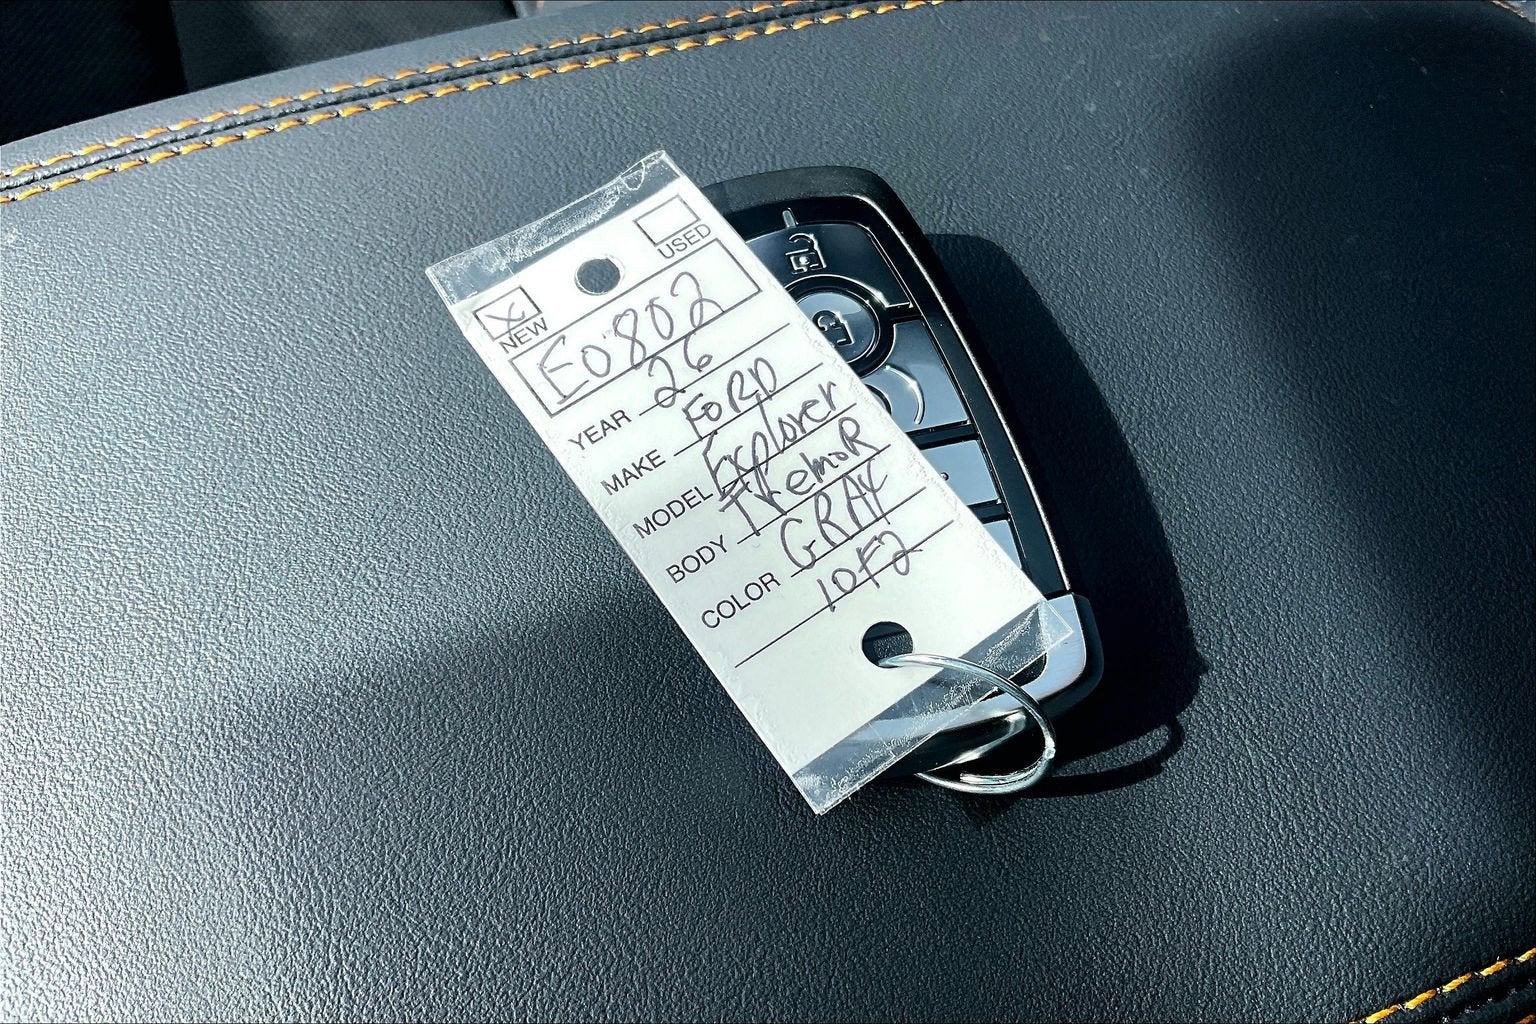 USED
X NEW
E0802
YEAR 26
MAKE FORD
MODEL Explorer
BODY TremoR
COLOR GRAY
10F2